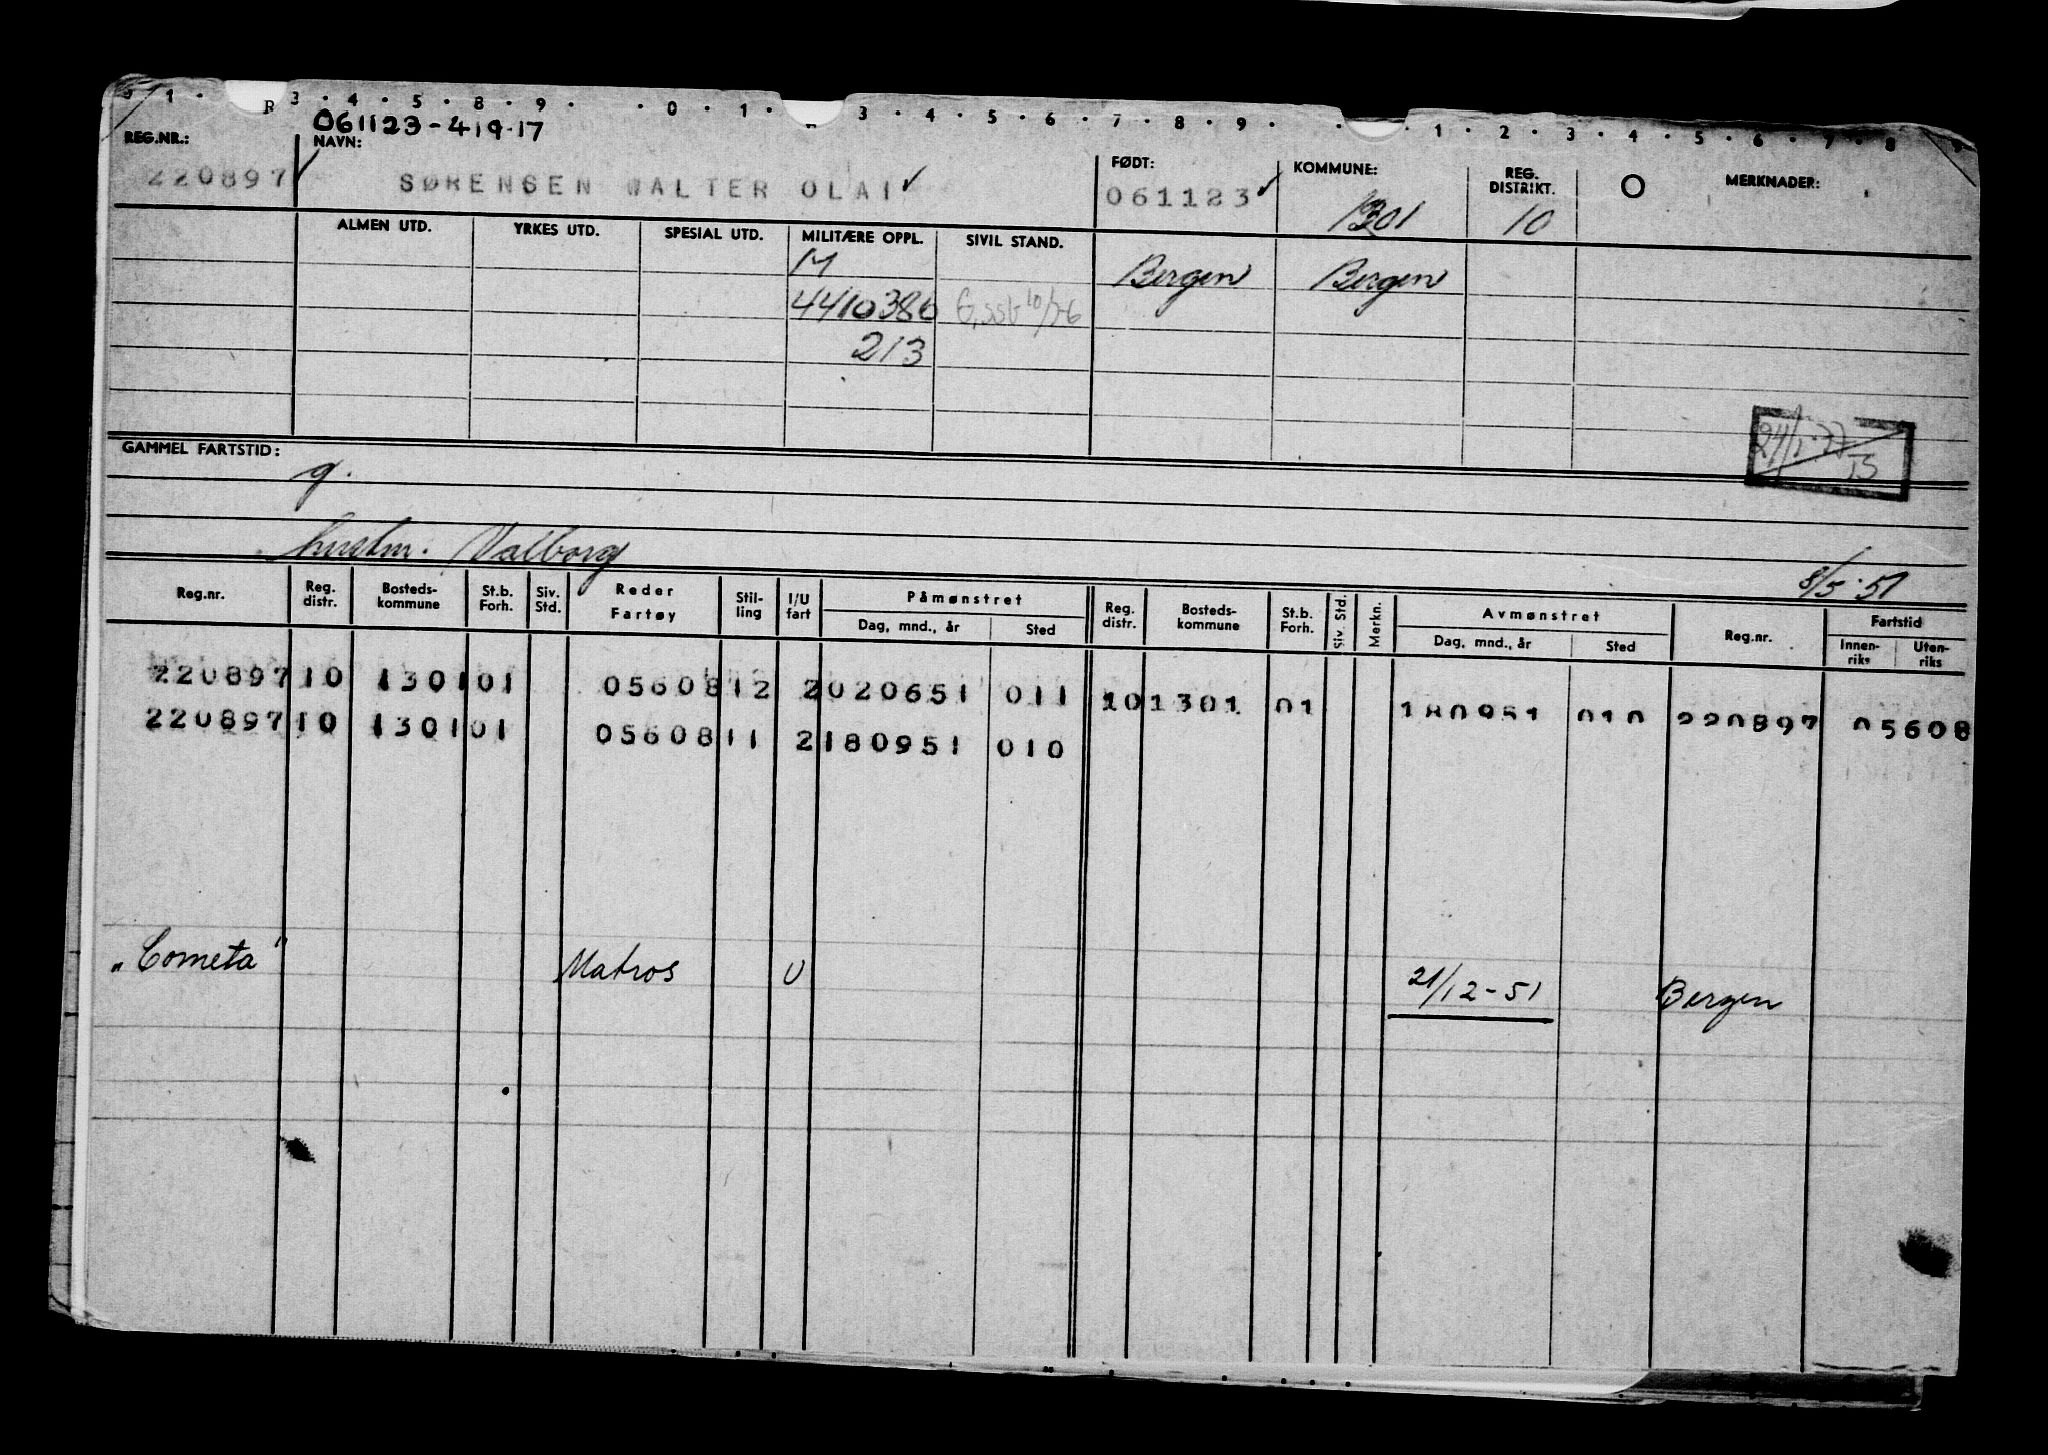 1 · R 3 · 4 · 5 · 8 · 9 · · 0 · 1 · 3 · 4 · 5 · 6 · 7 · 8 · 9 · · 1 · 2 · 3 · 4 · 5 · 6 · 7 · 8
061123-41917
REG.NR.: NAVN: FØDT: KOMMUNE: REG. DISTRIKT. O MERKNADER:
220897 SØRENSEN WALTER OLAI 061123 1301 10
ALMEN UTD. YRKES UTD. SPESIAL UTD. MILITÆRE OPPL. SIVIL STAND.
M Bergen Bergen
4410386
213
24/1-77
GAMMEL FARTSTID:
g.
hustru. Valborg
8/5-51
Reg.nr. Reg. distr. Bosteds-kommune St.b. Forh. Siv. Std. Reder Fartøy Stil-ling I/U fart Påmønstret Dag, mnd., år Sted Reg. distr. Bosteds-kommune St.b. Forh. Siv. Std. Merkn. Avmønstret Dag, mnd., år Sted Reg.nr. Fartstid Innen-riks Uten-riks
220897 10 1301 01 05608 12 2 020651 011 10 1301 01 180951 010 220897 05608
220897 10 1301 01 05608 11 2 180951 010
„Cometa" Matros U 21/12-51 Bergen